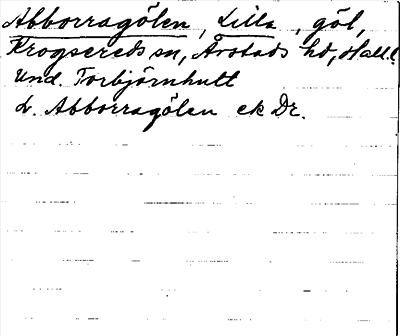 Abborragölen, Lilla, göl,
Krogsereds sn, Årstads hd, Hall.l.
Und. Torbjörnhult
L. Abborragölen ek Dr.